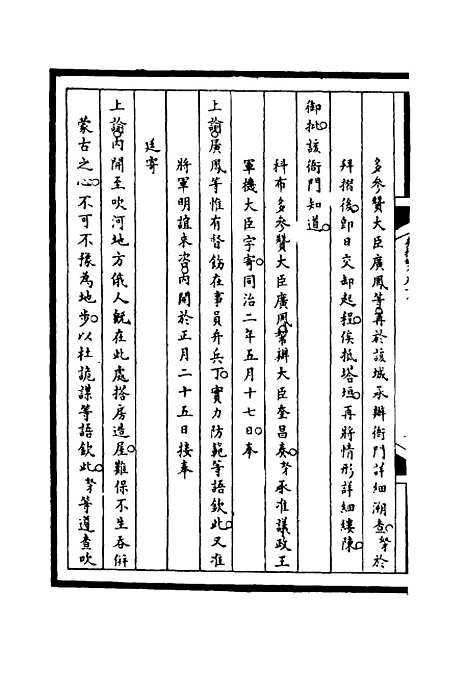 多參贊大臣廣鳳等。再於該城承辦衙門詳細溯查。孥於
拜摺後。卽日交卸起程。俟抵塔垣。再將情形詳細縷陳。
御批。該衙門知道。
科布多參贊大臣廣鳳。幫辦大臣奎昌奏。孥承准議政王
軍機大臣字寄。同治二年五月十七日。奉
上諭。廣鳳等惟有督飭在事員弁兵丁。實力防範等語。欽此。又准
將軍明誼來咨。內開於正月二十五日接奉
廷寄
上諭。內開至吹河地方俄人旣在此處搭房造屋。難保不生吞倂
蒙古之心。不可不豫為地步。以杜詭謀等語。欽此。孥等遵查吹